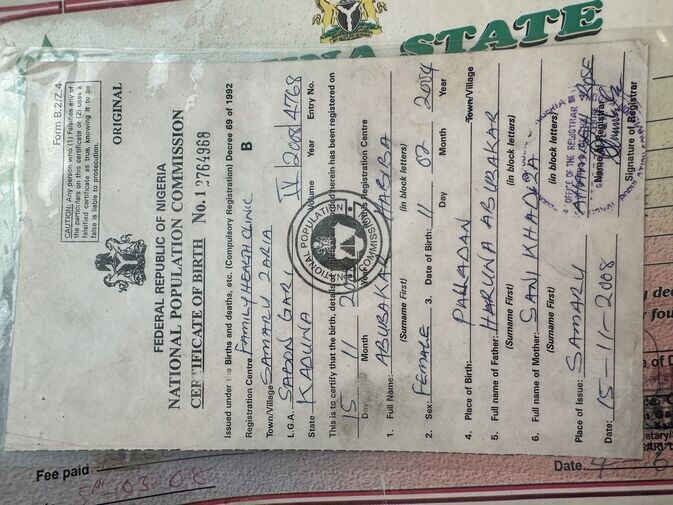 Form B.2/Z.4
CAUTION: Any person who (1) Falsifies any of
the particulars on this certificate or (2) uses a
falsified certificate as true, knowing it to be
false is liable to prosecution.
ORIGINAL
FEDERAL REPUBLIC OF NIGERIA
NATIONAL POPULATION COMMISSION
CERTIFICATE OF BIRTH No.1
Issued under Births and deaths, etc. (Compulsory Registration) Decree 69 of 1992
Registration Centre FAMILY HEALTH CLINIC B
Town/Village SAMARU ZARIA
L.G.A. SABON GARI IV 2008 4768
State KADUNA Volume Year Entry No.
This is to certify that the birth, details herein has been registered on
15 11 Registration Centre
Day Month
1. Full Name: ABUBAKAR HABIBA
(Surname First) (in block letters)
2. Sex: FEMALE 3. Date of Birth: 11 02 2004
Day Month Year
4. Place of Birth: PALLADAN Town/Village
5. Full name of Father: HARUNA ABUBAKAR
(Surname First) (in block letters)
6. Full name of Mother: SANI KHADIZA
(Surname First) (in block letters)
Place of Issue: SAMARU Name of Registrar
Date: 15-11-2008 Signature of Registrar
NATIONAL POPULATION COMMISSION
OFFICE OF THE REGISTRAR
STATE
Fee paid
5th-03-08
Date.